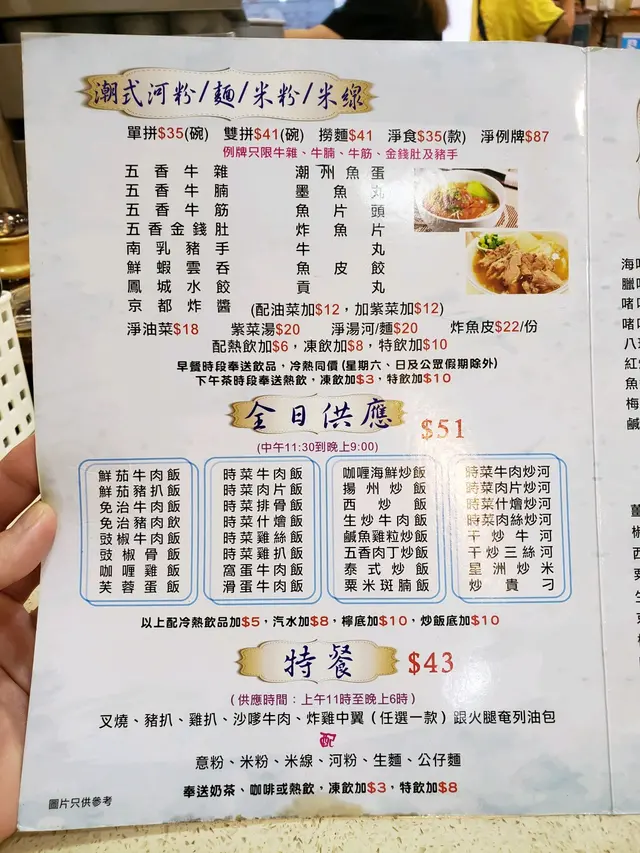 潮式河粉/麵/米粉/米線
單拼$35(碗) 雙拼$41(碗) 撈麵$41 淨食$35(款) 淨例牌$87
例牌只限牛雜、牛腩、牛筋、金錢肚及豬手
五香牛雜 潮州魚蛋
五香牛腩 墨魚丸
五香牛筋 魚片頭
五香金錢肚 炸魚片
南乳豬手 牛丸
鮮蝦雲吞 魚皮餃
鳳城水餃 貢丸
京都炸醬 (配油菜加$12，加紫菜加$12)
淨油菜$18 紫菜湯$20 淨湯河/麵$20 炸魚皮$22/份
配熱飲加$6，凍飲加$8，特飲加$10
早餐時段奉送飲品，冷熱同價(星期六、日及公眾假期除外)
下午茶時段奉送熱飲，凍飲加$3，特飲加$10
全日供應 $51
(中午11:30到晚上9:00)
鮮茄牛肉飯 時菜牛肉飯 咖喱海鮮炒飯 時菜牛肉炒河
鮮茄豬扒飯 時菜肉片飯 揚州炒飯 時菜肉片炒河
免治牛肉飯 時菜排骨飯 西炒飯 時菜什燴炒河
免治豬肉飲 時菜什燴飯 生炒牛肉飯 時菜肉絲炒河
豉椒牛肉飯 時菜雞絲飯 鹹魚雞粒炒飯 干炒牛河
豉椒骨飯 時菜雞扒飯 五香肉丁炒飯 干炒三絲河
咖喱雞飯 窩蛋牛肉飯 泰式炒飯 星洲炒米
芙蓉蛋飯 滑蛋牛肉飯 粟米斑腩飯 炒貴刁
以上配冷熱飲品加$5，汽水加$8，檸底加$10，炒飯底加$10
特餐 $43
(供應時間：上午11時至晚上6時)
叉燒、豬扒、雞扒、沙嗲牛肉、炸雞中翼(任選一款)跟火腿奄列油包
配
意粉、米粉、米線、河粉、生麵、公仔麵
奉送奶茶、咖啡或熱飲，凍飲加$3，特飲加$8
圖片只供參考